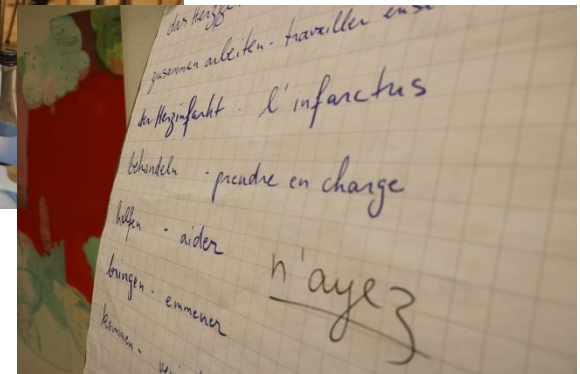 das Herz
zusammen arbeiten - travailler ense
der Herzinfarkt - l'infarctus
behandeln - prendre en charge
helfen - aider
n'ayez
bringen - emmener
kommen -